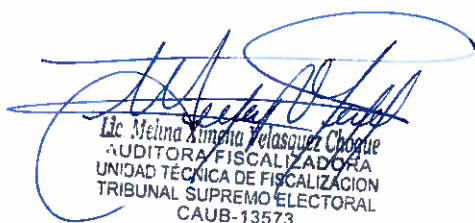 Lic Melina Ximena Velasquez Choque
AUDITORA FISCALIZADORA
UNIDAD TÉCNICA DE FISCALIZACION
TRIBUNAL SUPREMO ELECTORAL
CAUB-13573